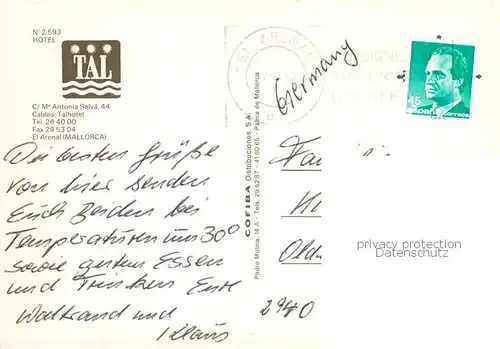 Nº 2.593
HOTEL
TAL
C/ Mª Antonia Salvá, 44
Cables: Talhotel
Tel. 26 40 00
Fax 29 53 04
El Arenal (MALLORCA)
Die besten Grüße
von hier senden
Euch beiden bei
Temperaturen um 30º
sowie gutem Essen
und Trinken Eure
Waltraud und
Klaus
COFIBA Distribuciones, S.A.
Padre Molina, 14 A - Tels. 29 52 87 - 41 50 65 - Palma de Mallorca
EL ARENAL
Germany
45
España correos
Fam
Oldu
2940
privacy protection
AnsichtskartenVersand